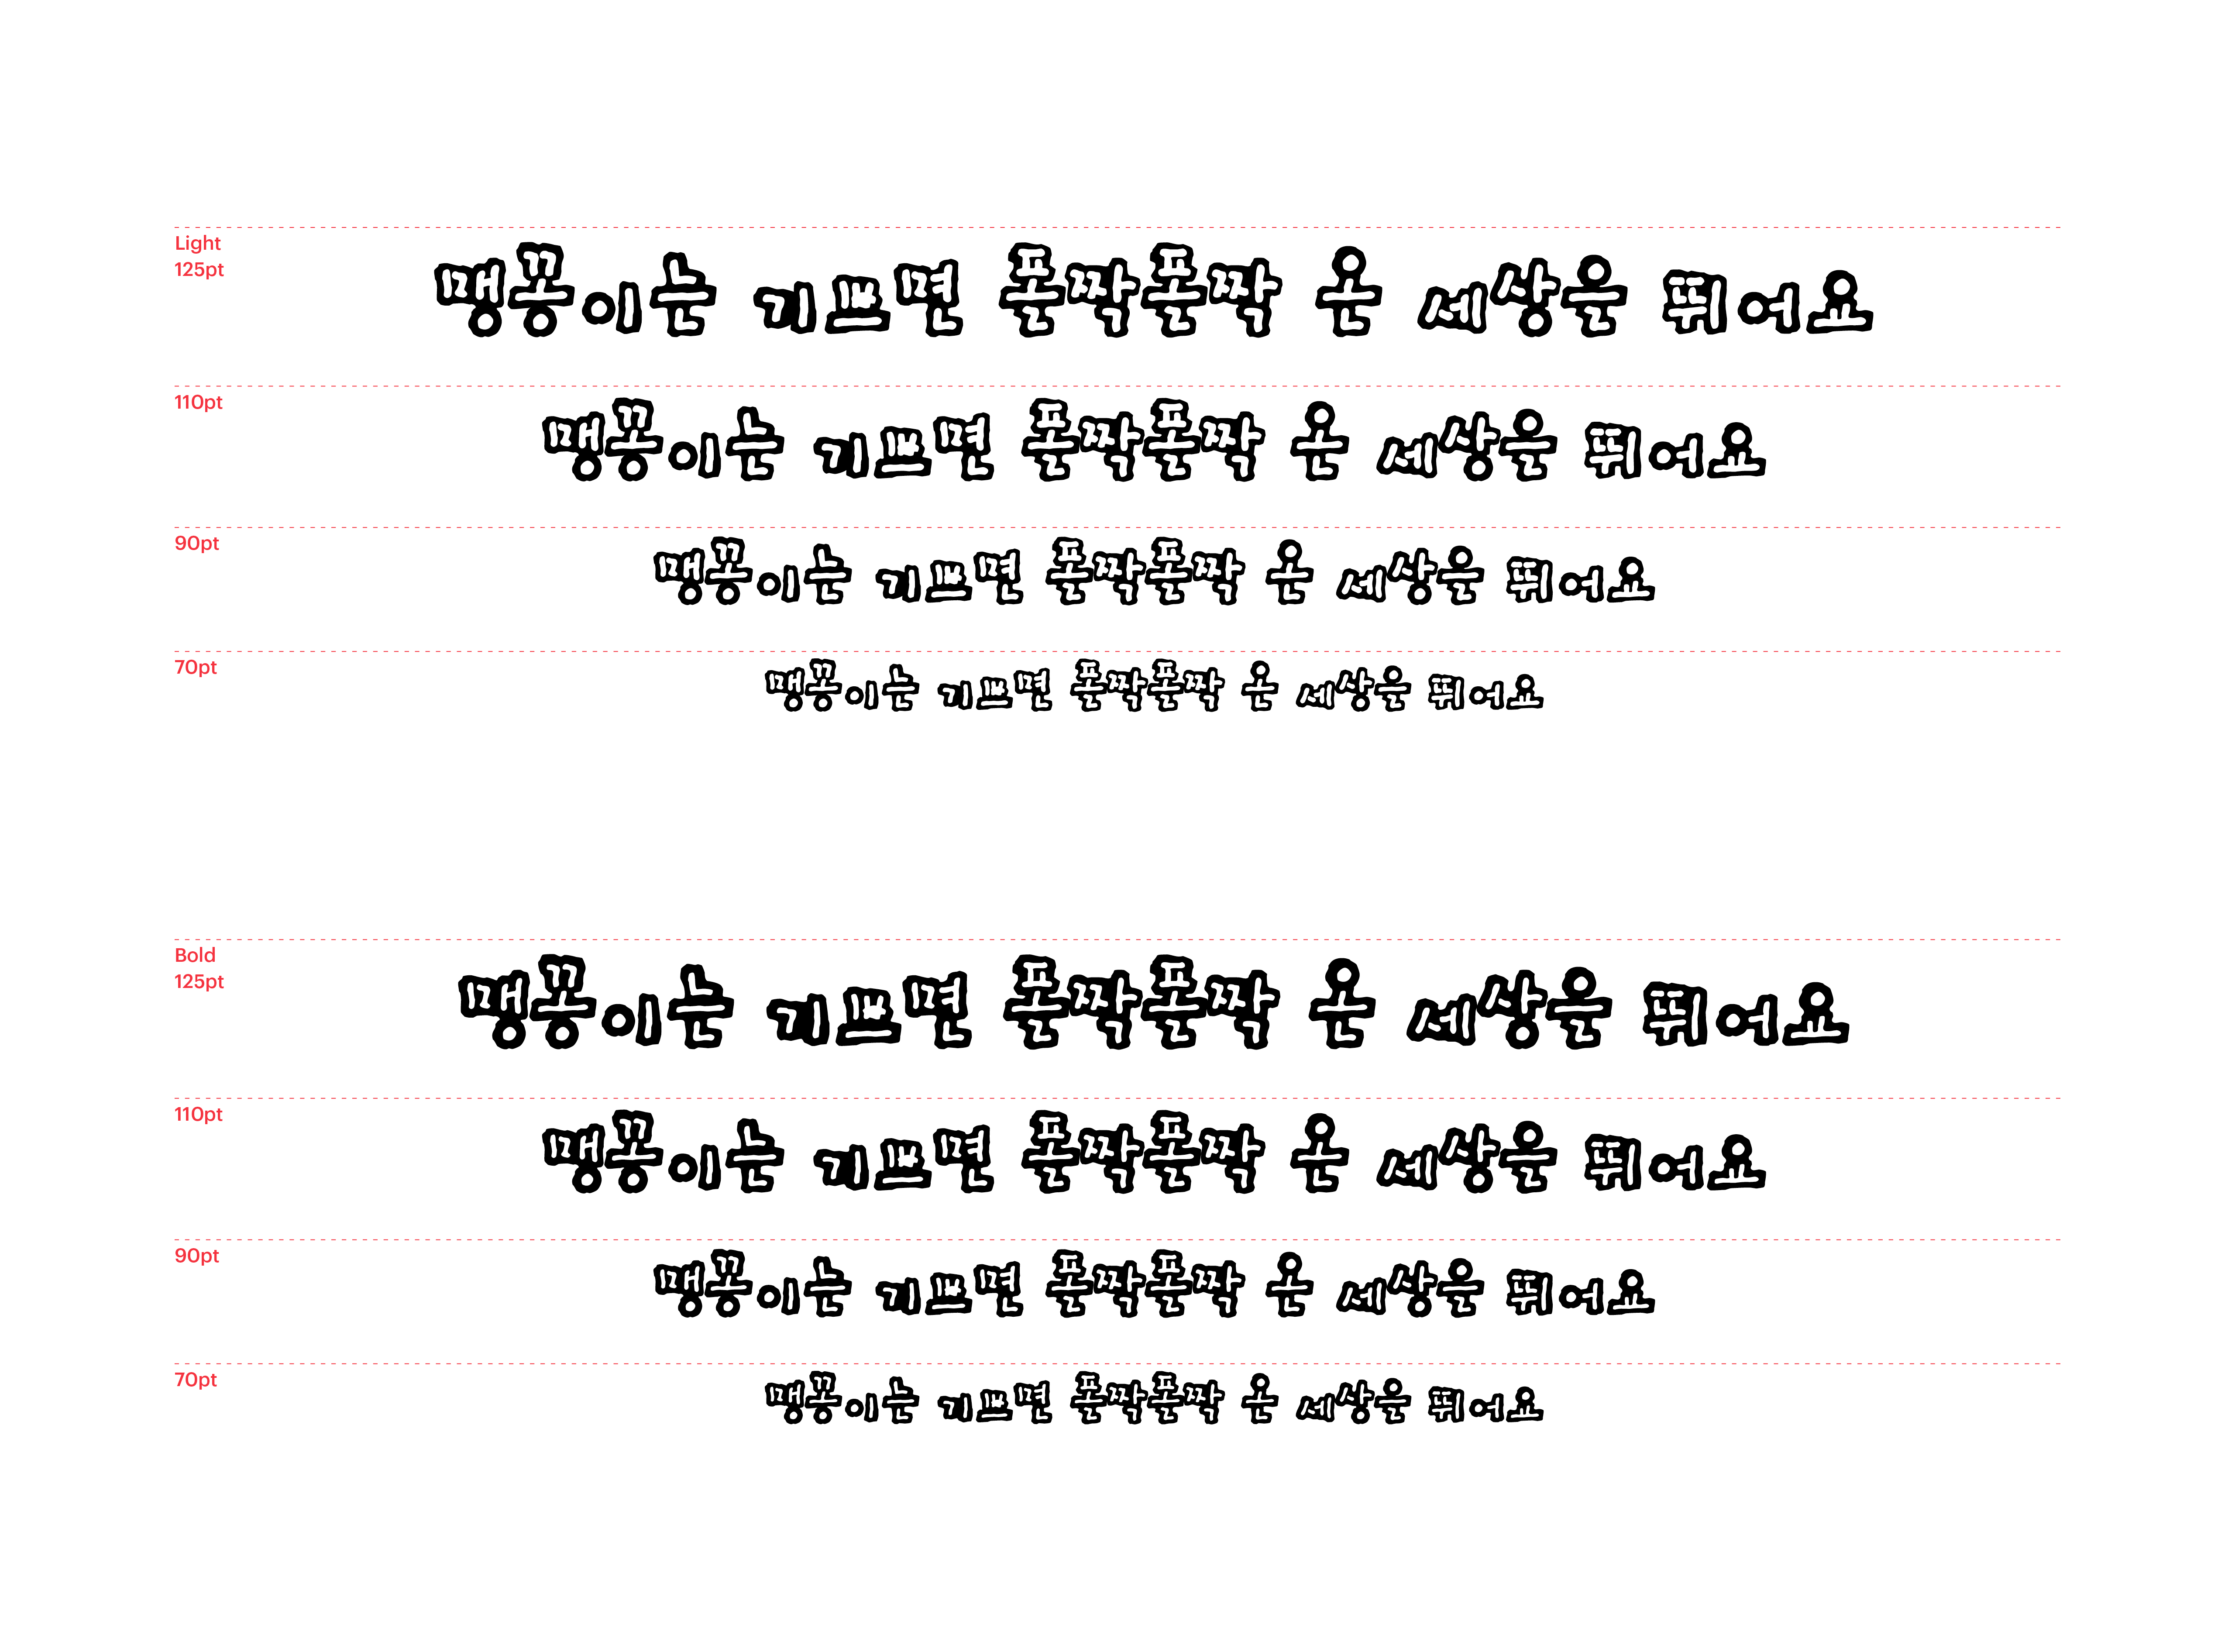 Light
125pt
맹꽁이는 기쁘면 폴짝폴짝 온 세상을 뛰어요
110pt
맹꽁이는 기쁘면 폴짝폴짝 온 세상을 뛰어요
90pt
맹꽁이는 기쁘면 폴짝폴짝 온 세상을 뛰어요
70pt
맹꽁이는 기쁘면 폴짝폴짝 온 세상을 뛰어요
Bold
125pt
맹꽁이는 기쁘면 폴짝폴짝 온 세상을 뛰어요
110pt
맹꽁이는 기쁘면 폴짝폴짝 온 세상을 뛰어요
90pt
맹꽁이는 기쁘면 폴짝폴짝 온 세상을 뛰어요
70pt
맹꽁이는 기쁘면 폴짝폴짝 온 세상을 뛰어요